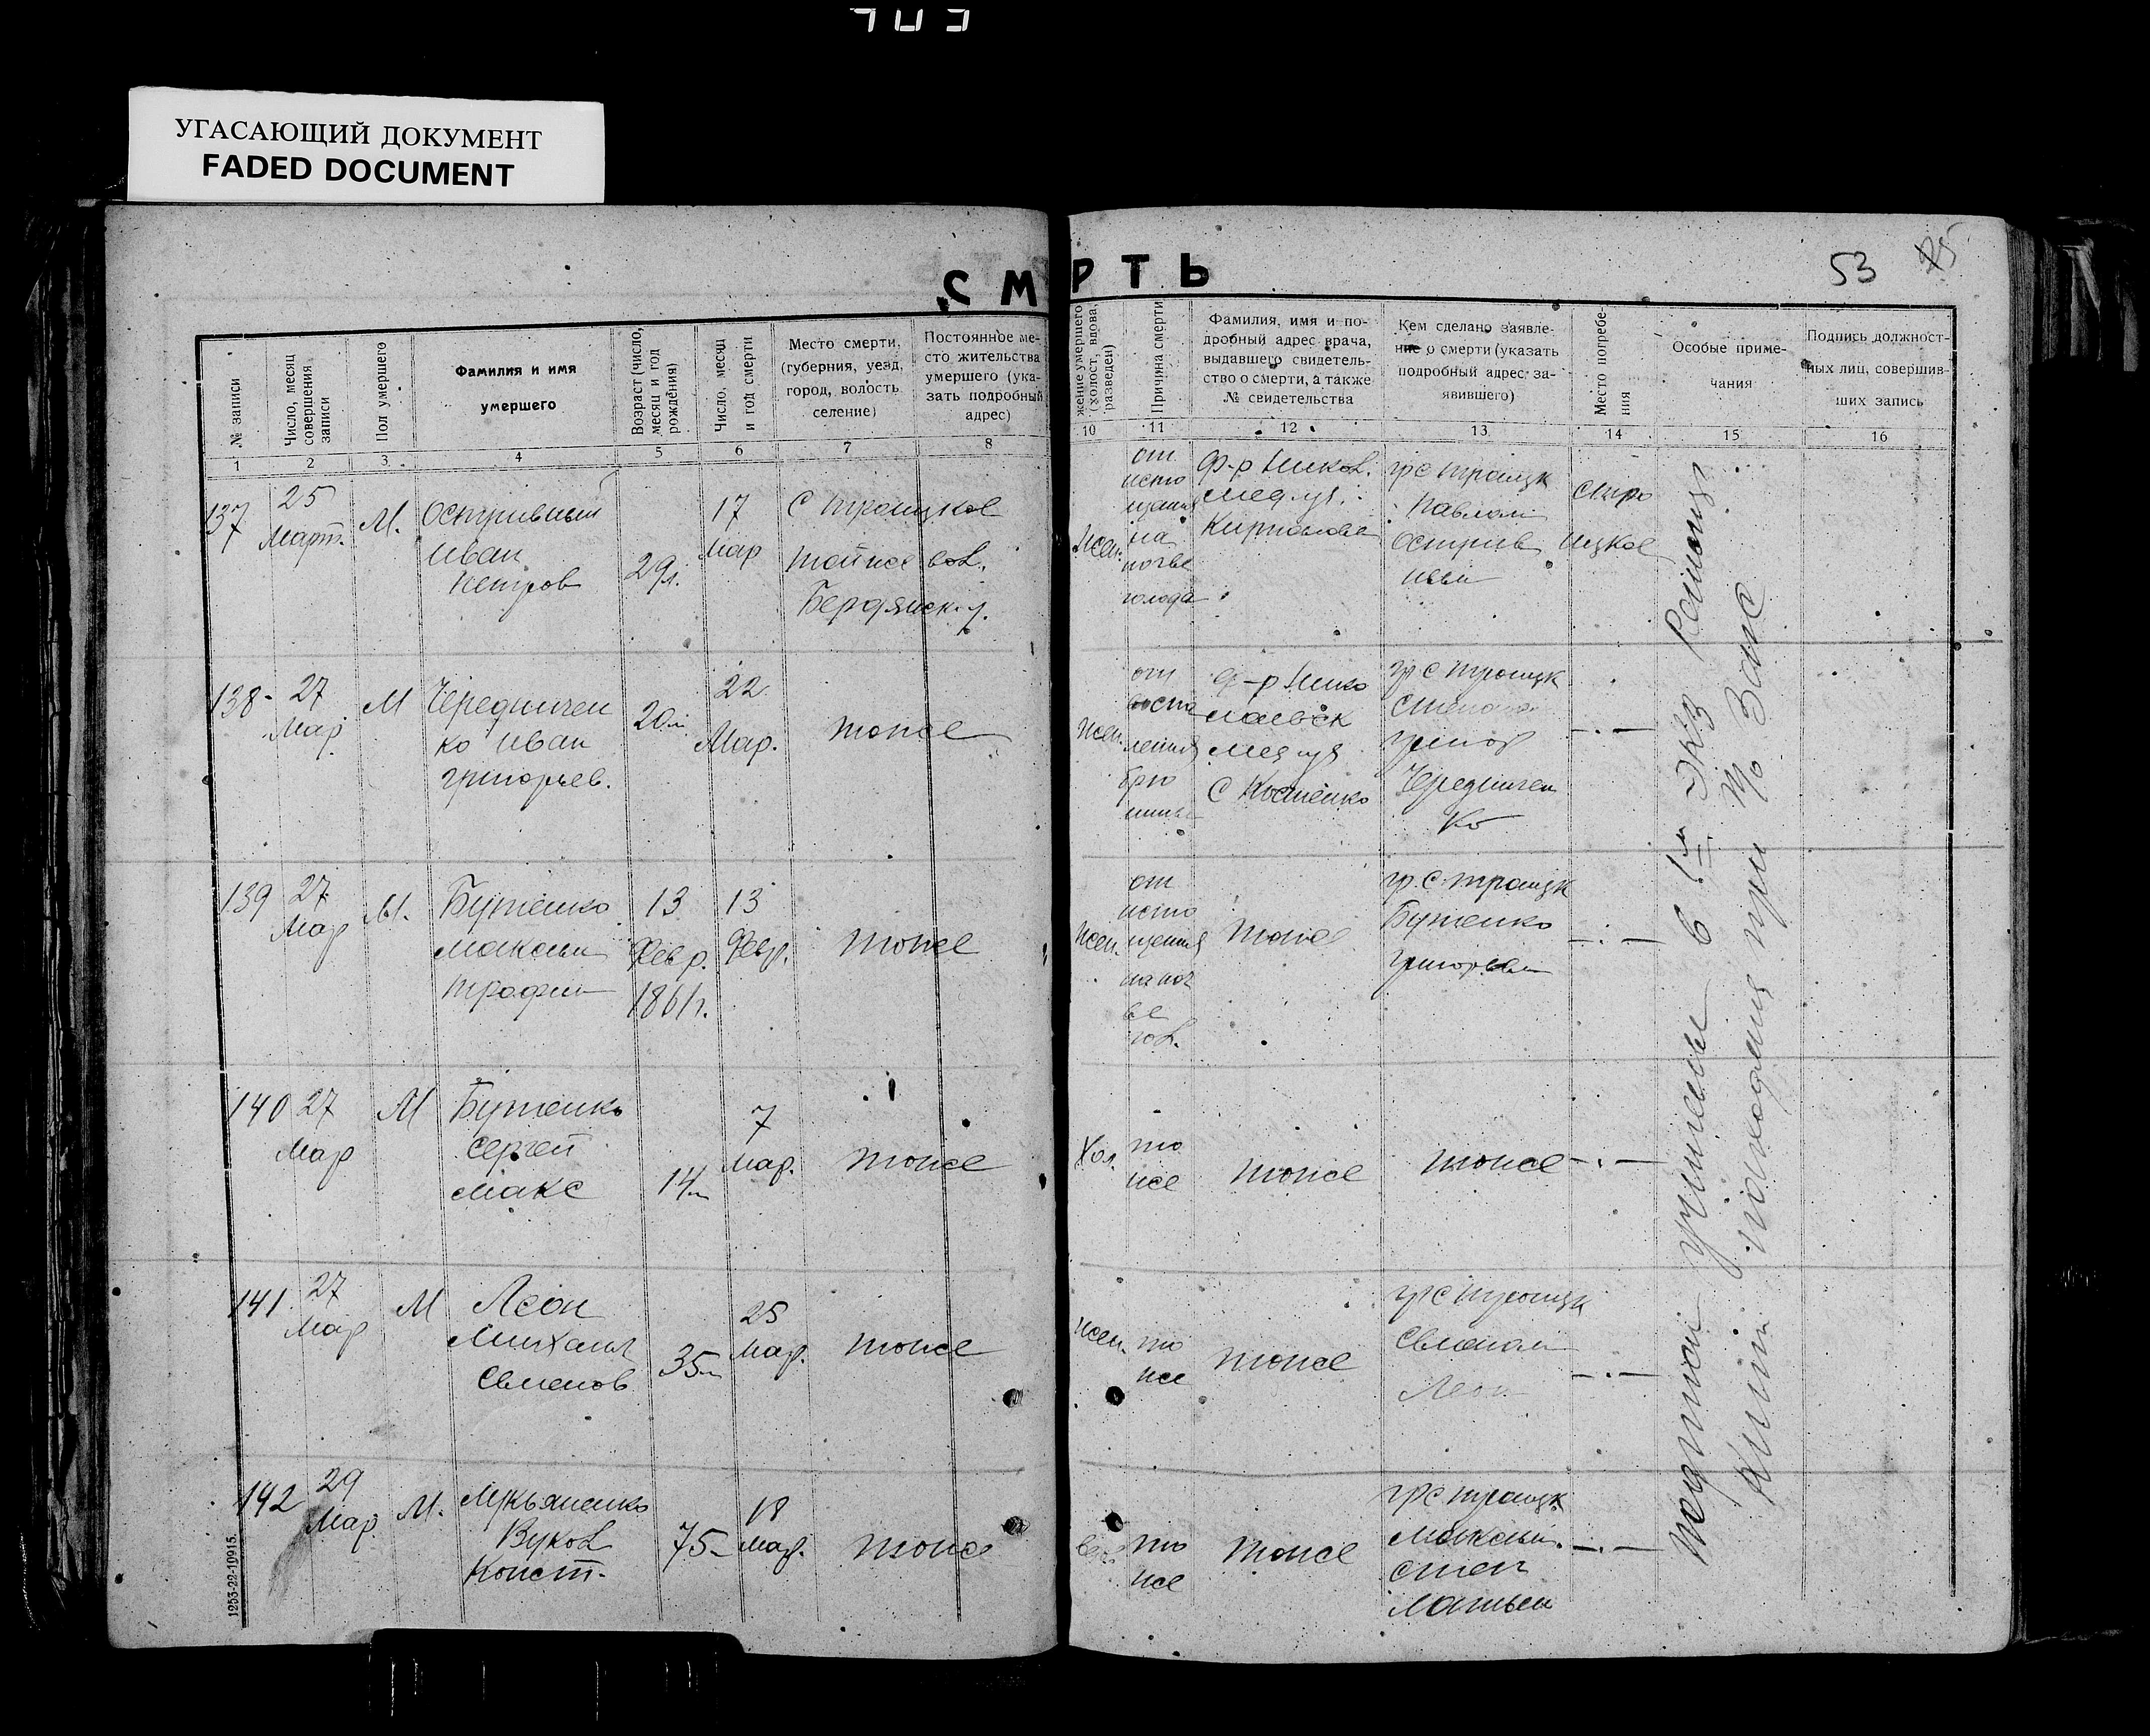 УГАСАЮЩИЙ ДОКУМЕНТ
FADED DOCUMENT
СМ РТЬ
53 25
№ записи
Число, месяц совершения записи
Пол умершего
Фамилия и имя
умершего
Возраст (число, месяц и год рождения)
Число, месяц и год смерти
Место смерти, (губерния, уезд, город, волость селение)
Постоянное место жительства умершего (указать подробный адрес)
жение умершего (холост, вдова, разведен)
Причина смерти
Фамилия, имя и подробный адрес врача, выдавшего свидетельство о смерти, а также № свидетельства
Кем сделано заявление о смерти (указать подробный адрес заявившего)
Место погребения
Особые примечания
Подпись должностных лиц, совершивших запись
1 2 3 4 5 6 7 8 10 11 12 13 14 15 16
137
25
Март.
М.
Остривный
Иван
Петров
29 л.
17
Мар
С Троицкое
того же вол.
Бердянск. у.
Жен.
от
исто
щения
на
почве
голода
Ф-р Никол.
Мед. уч.
гр с Троицк
Павлом
Острив
ным
Стро
ицкое
138-
27
Мар
М
Чередничен
ко Иван
Григорьев.
20
22
Мар.
тоже
Жен.
от
воспа
ления
брю
шины
Ф-р Нико
лаевск
Мед уч
гр с Троицк
Чередничен
ко
— . —
139
27
Мар
М.
Бутенко
Максим
Трофим
13
Февр.
1861 г.
13
Февр.
тоже
Жен.
от
исто
щения
на поч
ве
гол.
тоже
гр. с. Троицк
Бутенко
Григорьем
— . —
140
27
Мар
М
Бутенко
Сергей
Макс
14
7
Мар.
тоже
Хол.
то
же
тоже
тоже
— . —
141
27
Мар
М
Леон
Михаил
Семенов
35
25
Мар.
тоже
Жен.
то
же
тоже
гр с Троицк
Семеном
Леон
— . —
142
29
Мар.
М.
Лукьяненко
Вукол
Конст.
75
18
Мар.
тоже
то
же
тоже
гр с Троицк
Максим.
— . —
в 1м ЭКЗ
при
ЗАГС
1253-22-10915.